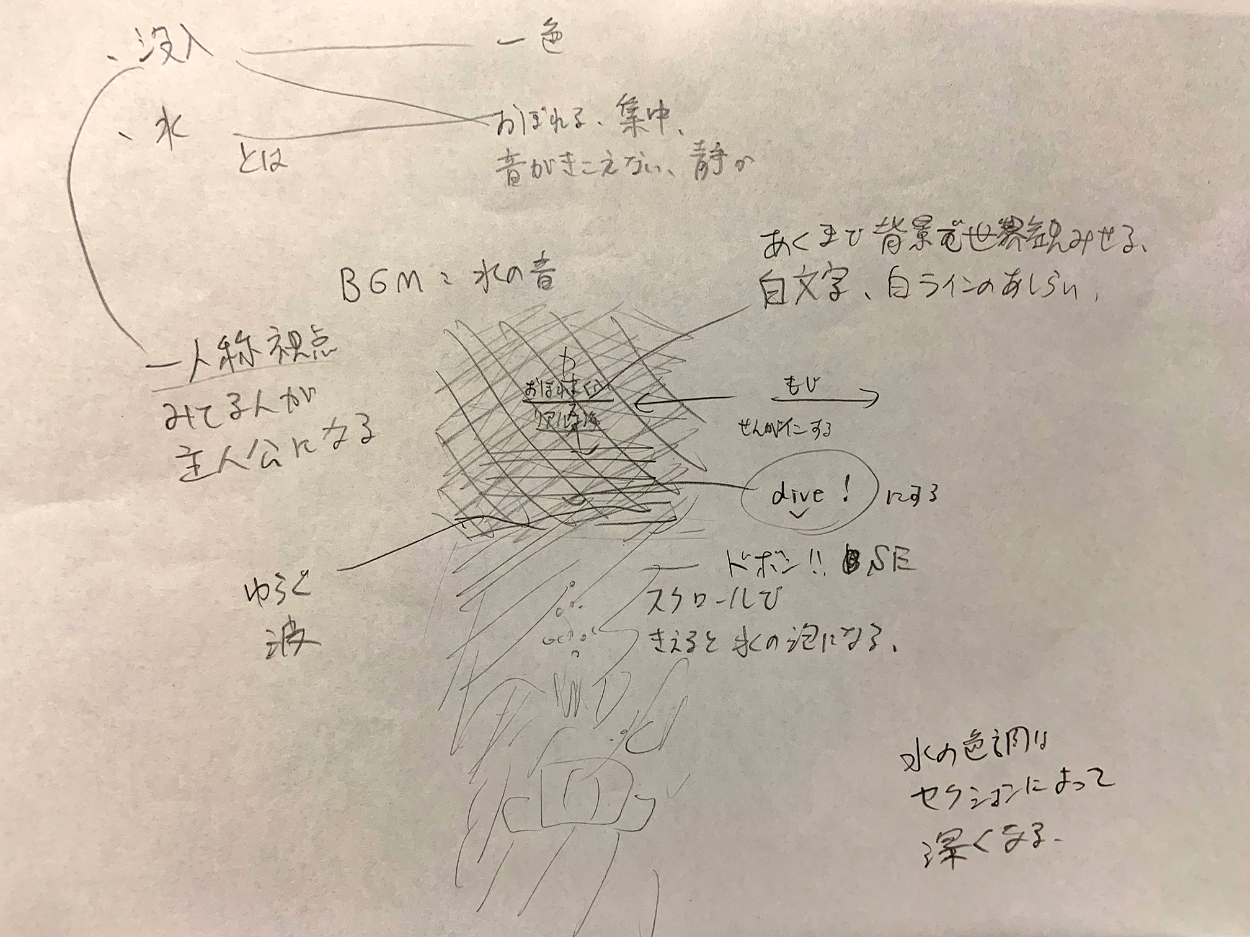 、没入
一色
、水
とは
おぼれる、集中、
音がきこえない、静か
あくまで背景で世界観みせる、
白文字、白ラインのあしらい、
BGM：水の音
一人称視点
みてる人が
主人公になる
おぼれまくり
もじ
せんがインする
dive!
にする
ゆらぐ
波
ドボン!! SE
スクロールで
きえると水の泡になる、
水の色調は
セクションによって
深くなる、